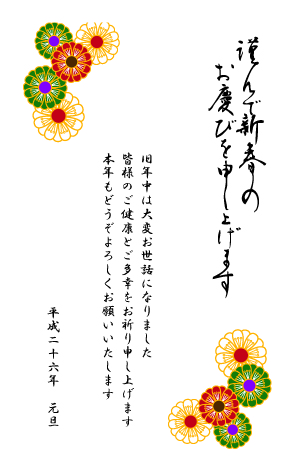 謹んで新春の
お慶びを申し上げます
旧年中は大変お世話になりました
皆様のご健康とご多幸をお祈り申し上げます
本年もどうぞよろしくお願いいたします
平成二十六年　元旦